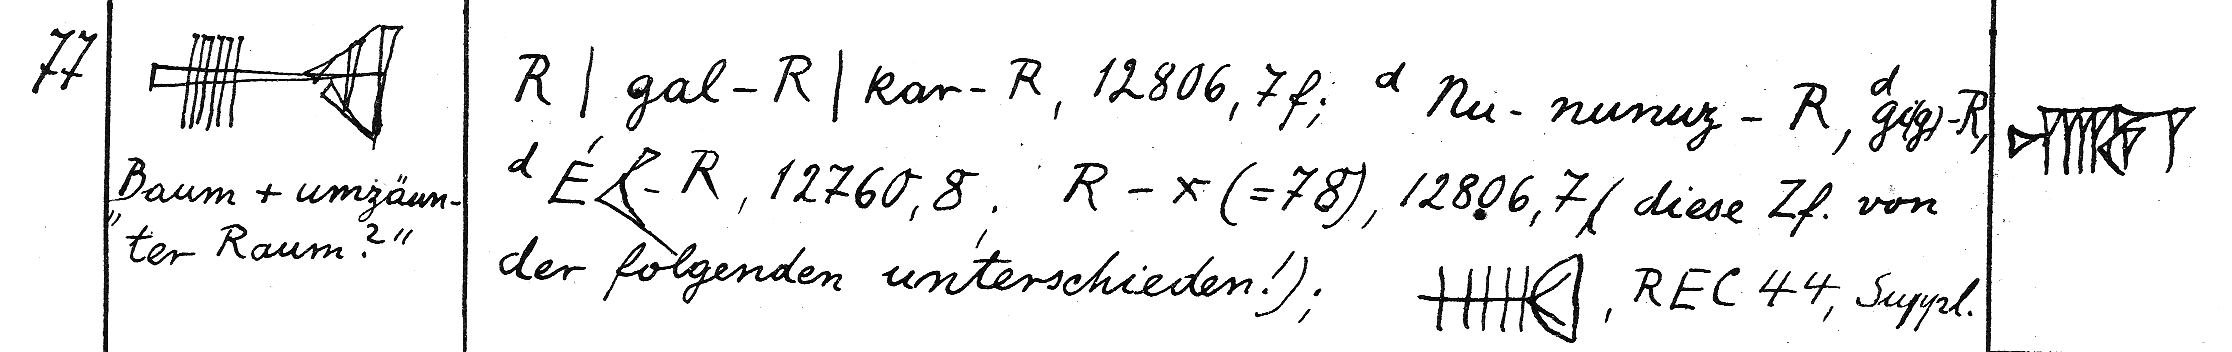 77
Baum + umzäun-
"ter Raum?"
R | gal-R | kar-R, 12806,7f; ᵈ Nu-nunuz-R, ᵈgi(g)-R,
ᵈ É -R, 12760,8; R-x(=78), 12806,7 (diese Zf. von
der folgenden unterschieden!); , REC 44, Suppl.